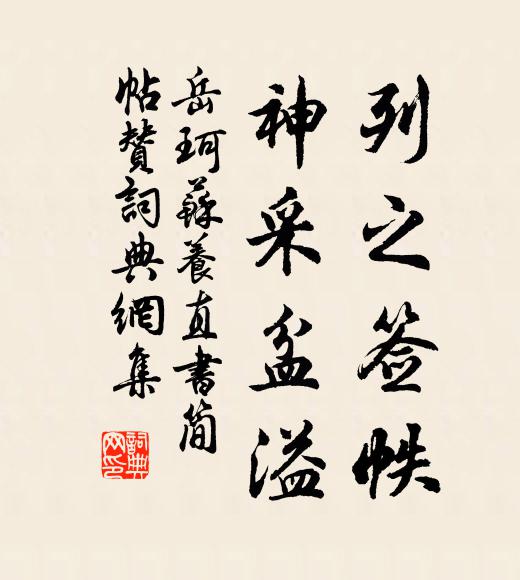 列之签帙
神采盆溢
岳珂蘇養直書简
帖贊詞典網集
詞典网印